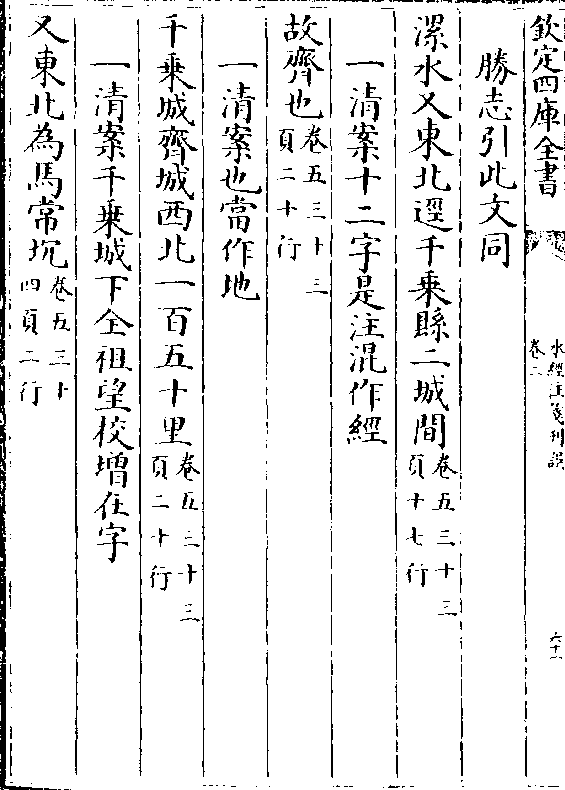 欽定四庫全書
水經注箋刊誤
卷二
六十一
勝志引此文同
漯水又東北逕千乗縣二城間卷五三十三頁十七行
一清案十二字是注混作經
故齊也卷五三十三頁二十行
一清案也當作地
千乗城齊城西北一百五十里卷五三十三頁二十行
一清案千乗城下全祖望校增在字
又東北為馬常坈卷五三十四頁二行